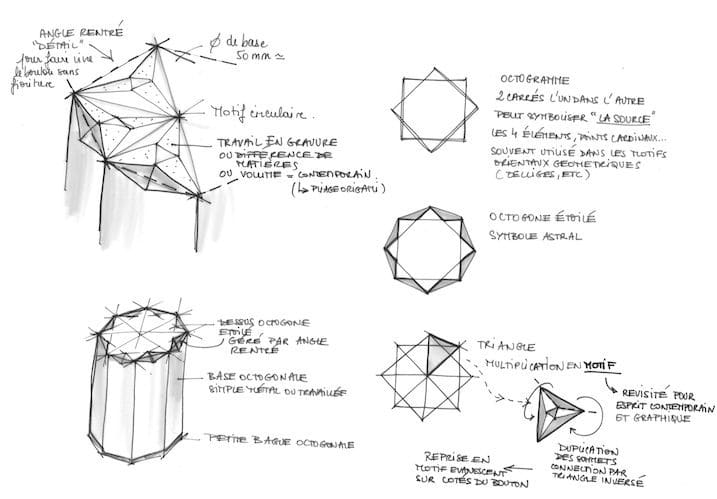 ANGLE RENTRÉ
"DÉTAIL"
pour faire vivre
le bouton sans
fioriture
Ø de base
50 mm ≃
MOTIF CIRCULAIRE.
TRAVAIL EN GRAVURE
OU DIFFERENCE DE
MATIÈRES
OU VOLUME = CONTEMPORAIN.
(↳ PLIAGE ORIGAMI)
OCTOGRAMME
2 CARRÉS L'UN DANS L'AUTRE
PEUT SYMBOLISER "LA SOURCE"
LES 4 ÉLÉMENTS, POINTS CARDINAUX...
SOUVENT UTILISÉ DANS LES MOTIFS
ORIENTAUX GEOMETRIQUES
(ZELLIGES, ETC)
OCTOGONE ÉTOILÉ
SYMBOLE ASTRAL
DESSUS OCTOGONE
ETOILÉ
GÉRÉ PAR ANGLE
RENTRÉ
BASE OCTOGONALE
SIMPLE MÉTAL OU TRAVAILLÉE
PETITE BAGUE OCTOGONALE
TRIANGLE
MULTIPLICATION EN MOTIF
REVISITÉ POUR
ESPRIT CONTEMPORAIN
ET GRAPHIQUE
DUPLICATION
DES SOMMETS
CONNECTION PAR
TRIANGLE INVERSÉ
REPRISE EN
MOTIF EVANESCENT
SUR COTÉS DU BOUTON